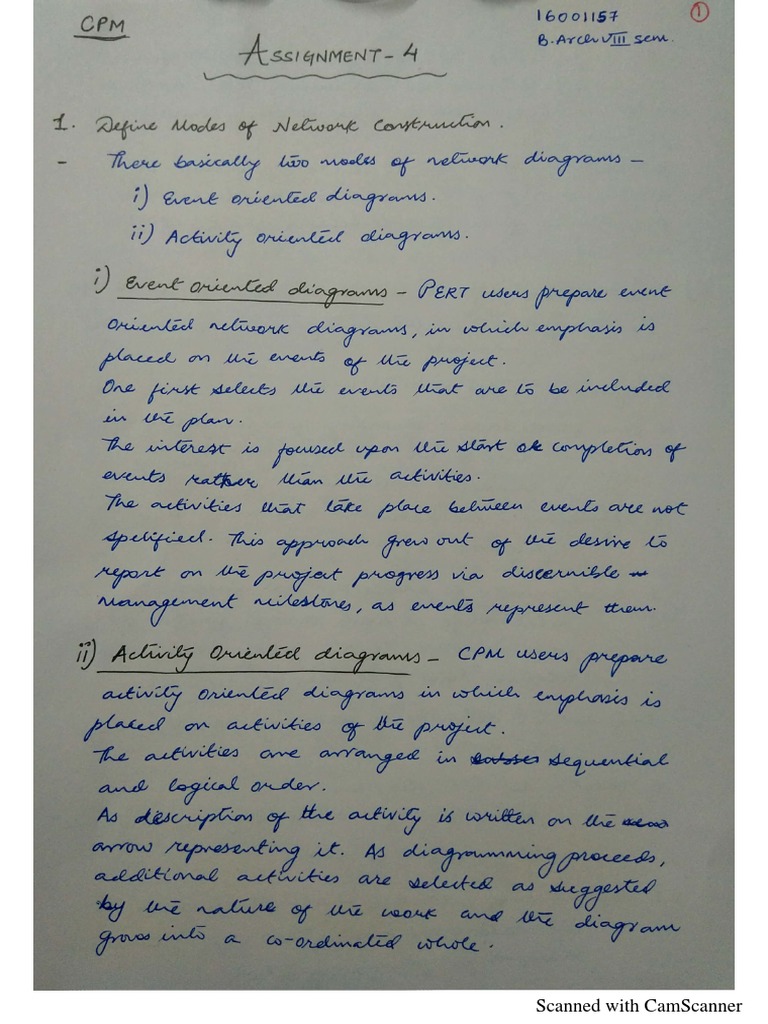 CPM
16001157
1
B. Arch VIII sem.
ASSIGNMENT - 4
1. Define Modes of Network Construction.
- There basically two modes of network diagrams -
i) Event oriented diagrams.
ii) Activity oriented diagrams.
i) Event oriented diagrams - PERT users prepare event
oriented network diagrams, in which emphasis is
placed on the events of the project.
One first selects the events that are to be included
in the plan.
The interest is focused upon the start or completion of
events rather than the activities.
The activities that take place between events are not
spelified. This approach grew out of the desire to
report on the project progress via discernible
Management milestones, as events represent them.
ii) Activity Oriented diagrams - CPM users prepare
activity oriented diagrams in which emphasis is
placed on activities of the project.
The activities are arranged in sequential
and logical order.
As description of the activity is written on the
arrow representing it. As diagramming proceeds,
additional activities are selected as suggested
by the nature of the work and the diagram
grows into a co-ordinated whole.
Scanned with CamScanner